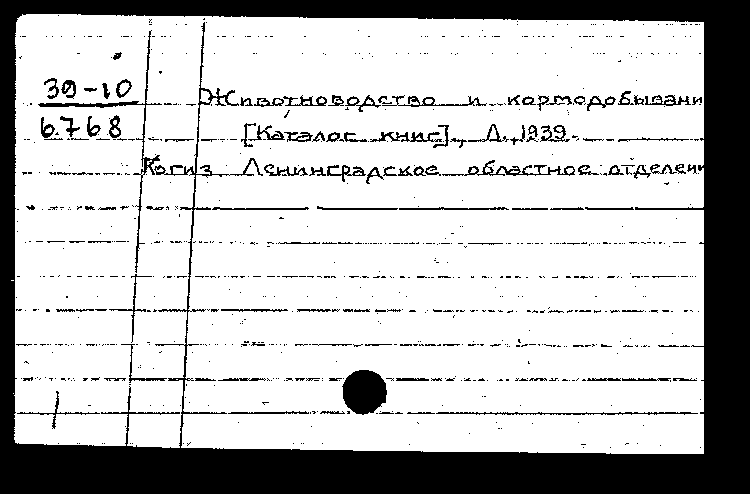 39-10
6768
Животноводство и кормодобывани
[Каталог книг]., Л., 1939.
Когиз Ленинградское областное отделени